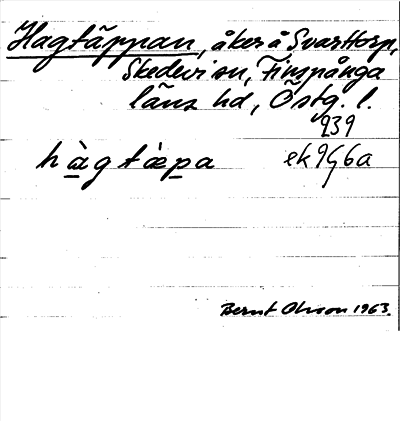 Hagtäppan, åker å Svarttorp,
Skedevi sn, Finspånga
läns hd, Östg. l.
239
hàgtæpa ek 9G6a
Bernt Olsson 1963.